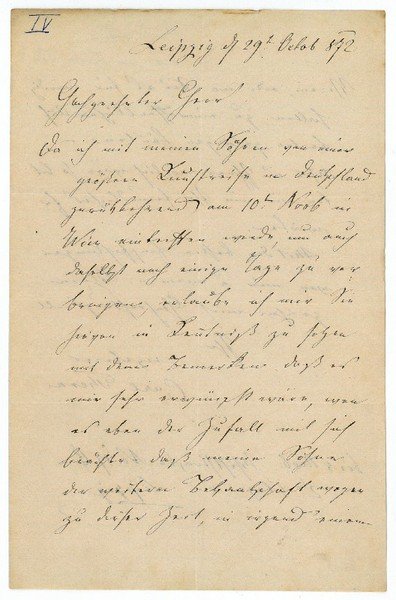 IV
Leipzig d 29t. Octob 872
Hochgeehrter Herr
Da ich mit meinen Söhnen von einer
größern Kunstreise in Deutschland
zurükkehrend am 10t Novb in
Wien eintreffen werde, um auch
daselbst noch einige Tage zu ver
bringen, erlaube ich mir Sie
hievon in Kentniß zu setzen
mit dem Bemerken daß es
mir sehr erwünscht wäre, wen
es eben der Zufall mit sich
brächte daß meine Söhne
der weitern Bekantschaft wegen
zu dieser Zeit, in irgend einem